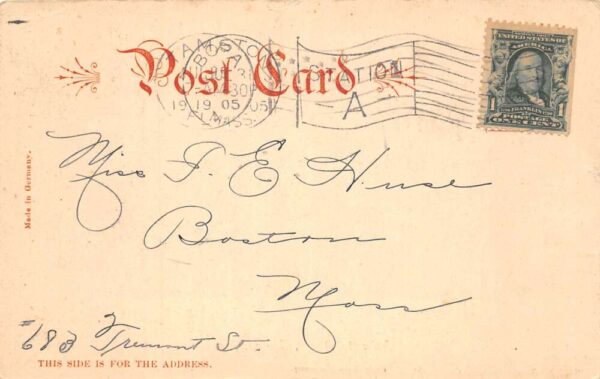 Post Card
BOSTON
1905
MASS.
STATION
A
UNITED STATES OF
1 1
POSTAGE
ONE CENT
Made in Germany.
Miss F. E. Huse
Boston
Mass
#683 Tremont St.
THIS SIDE IS FOR THE ADDRESS.